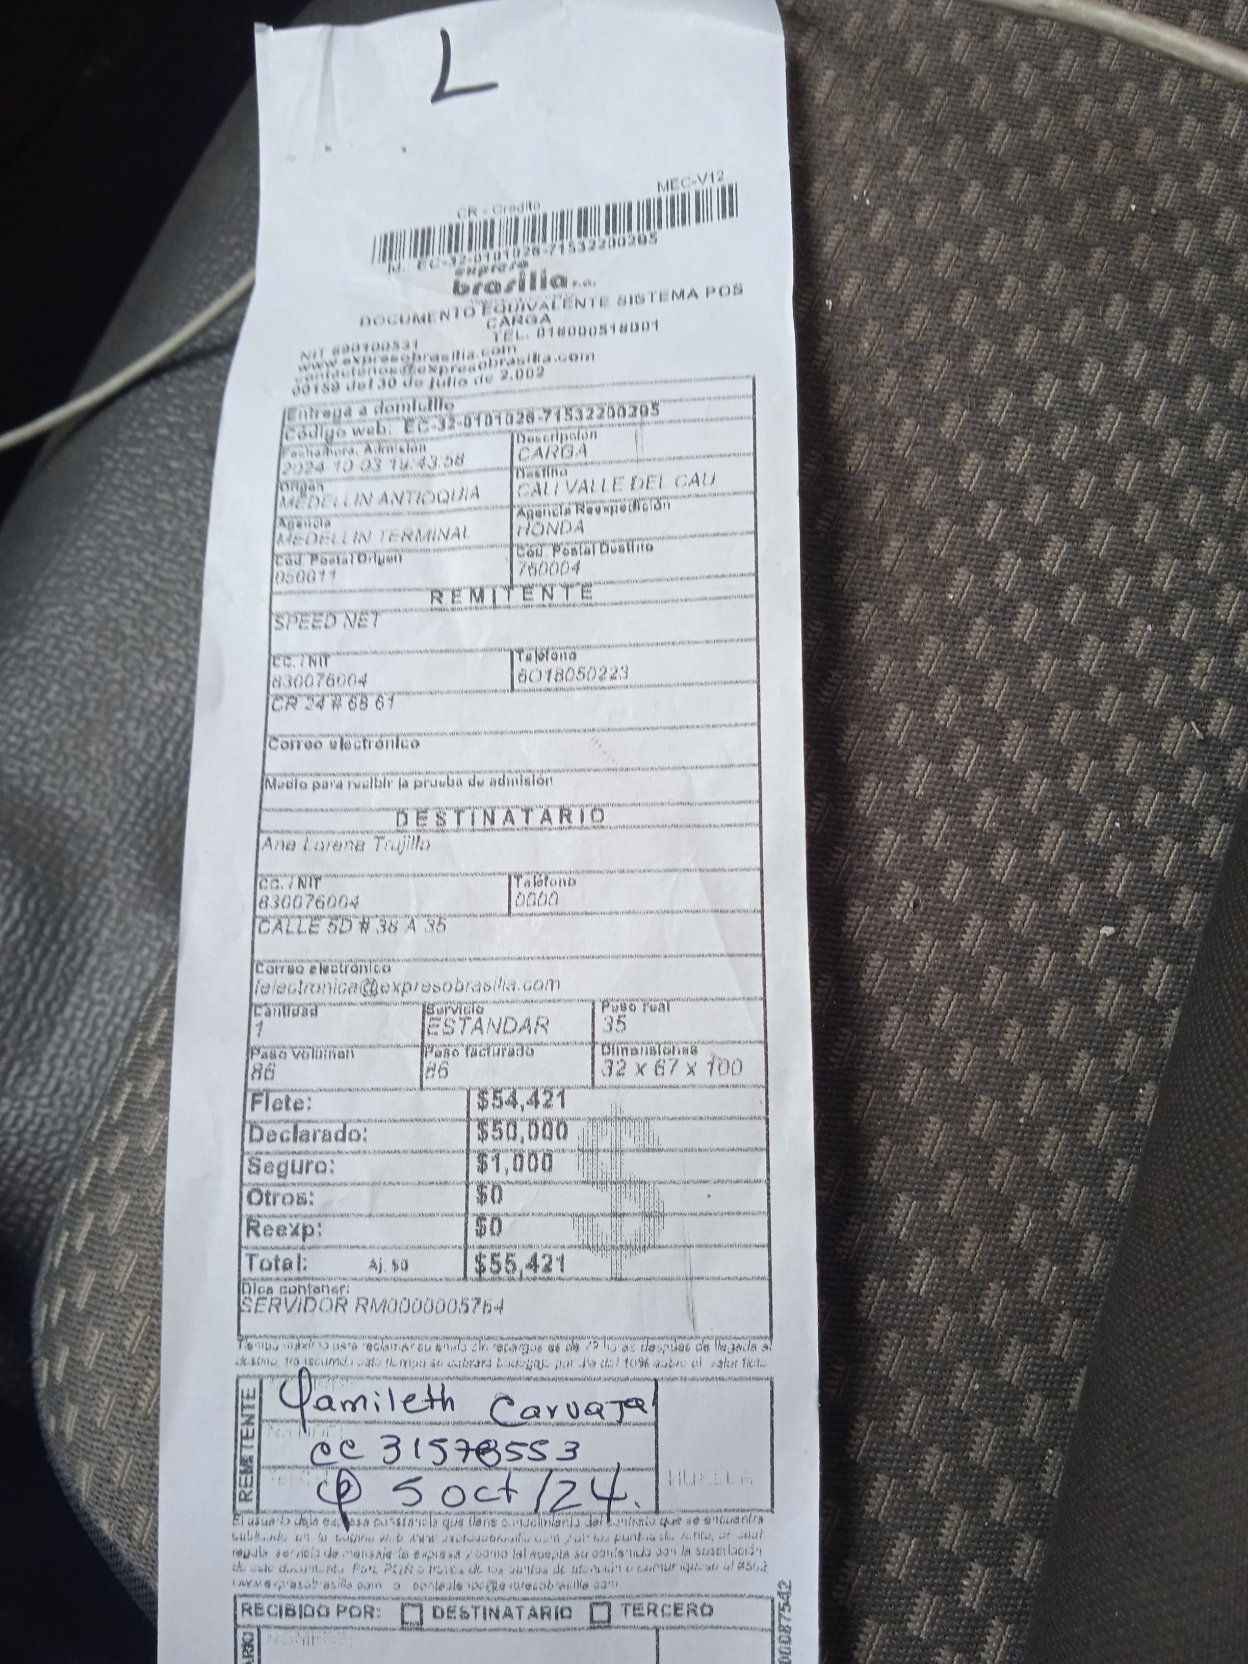 L
MEC-V12
CR - Credito
EC-32-0101026-71532200205
expreso
brasilia s.a.
DOCUMENTO EQUIVALENTE SISTEMA POS
CARGA
NIT 890100531 TEL. 018000518001
www.expresobrasilia.com
contactenos@expresobrasilia.com
00189 del 30 de julio de 2.002
Entrega a domicilio
Código web: EC-32-0101026-71532200205
Fecha/hora. Admisión Descripción
2024-10-03 19:43:58 CARGA
Origen Destino
MEDELLIN ANTIOQUIA CALI VALLE DEL CAU
Agencia Agencia Reexpedición
MEDELLIN TERMINAL HONDA
Cód. Postal Origen Cód. Postal Destino
050011 760004
REMITENTE
SPEED NET
CC. / NIT Teléfono
830076004 6018050223
CR 24 # 68 61
Correo electrónico
Medio para recibir la prueba de admisión
DESTINATARIO
Ana Lorena Trujillo
CC. / NIT Teléfono
830076004 0000
CALLE 5D # 38 A 35
Correo electrónico
felectronica@expresobrasilia.com
Cantidad Servicio Peso real
1 ESTANDAR 35
Peso volumen Peso facturado Dimensiones
86 86 32 x 67 x 100
Flete: $54,421
Declarado: $50,000
Seguro: $1,000
Otros: $0
Reexp: $0
Total: Aj. $0 $55,421
Dice contener:
SERVIDOR RM0000005764
Tiempo máximo para reclamar su envío sin recargos es de 72 horas después de llegada al
destino, transcurrido este tiempo se cobrará bodegaje por día del 10% sobre el valor flete
REMITENTE
Yamileth Carvajal
CC 31578553
5 oct/24.
HUELLA
El usuario deja expresa constancia que tiene conocimiento del contrato que se encuentra
publicado en la página web www.expresobrasilia.com y en los puntos de venta, el cual
regula servicio de mensajería expresa y como tal acepta su contenido con la suscripción
de este documento. Para PQR a través de los puntos de atención o comuníquese al #502
www.expresobrasilia.com o
RECIBIDO POR: DESTINATARIO TERCERO
00087542